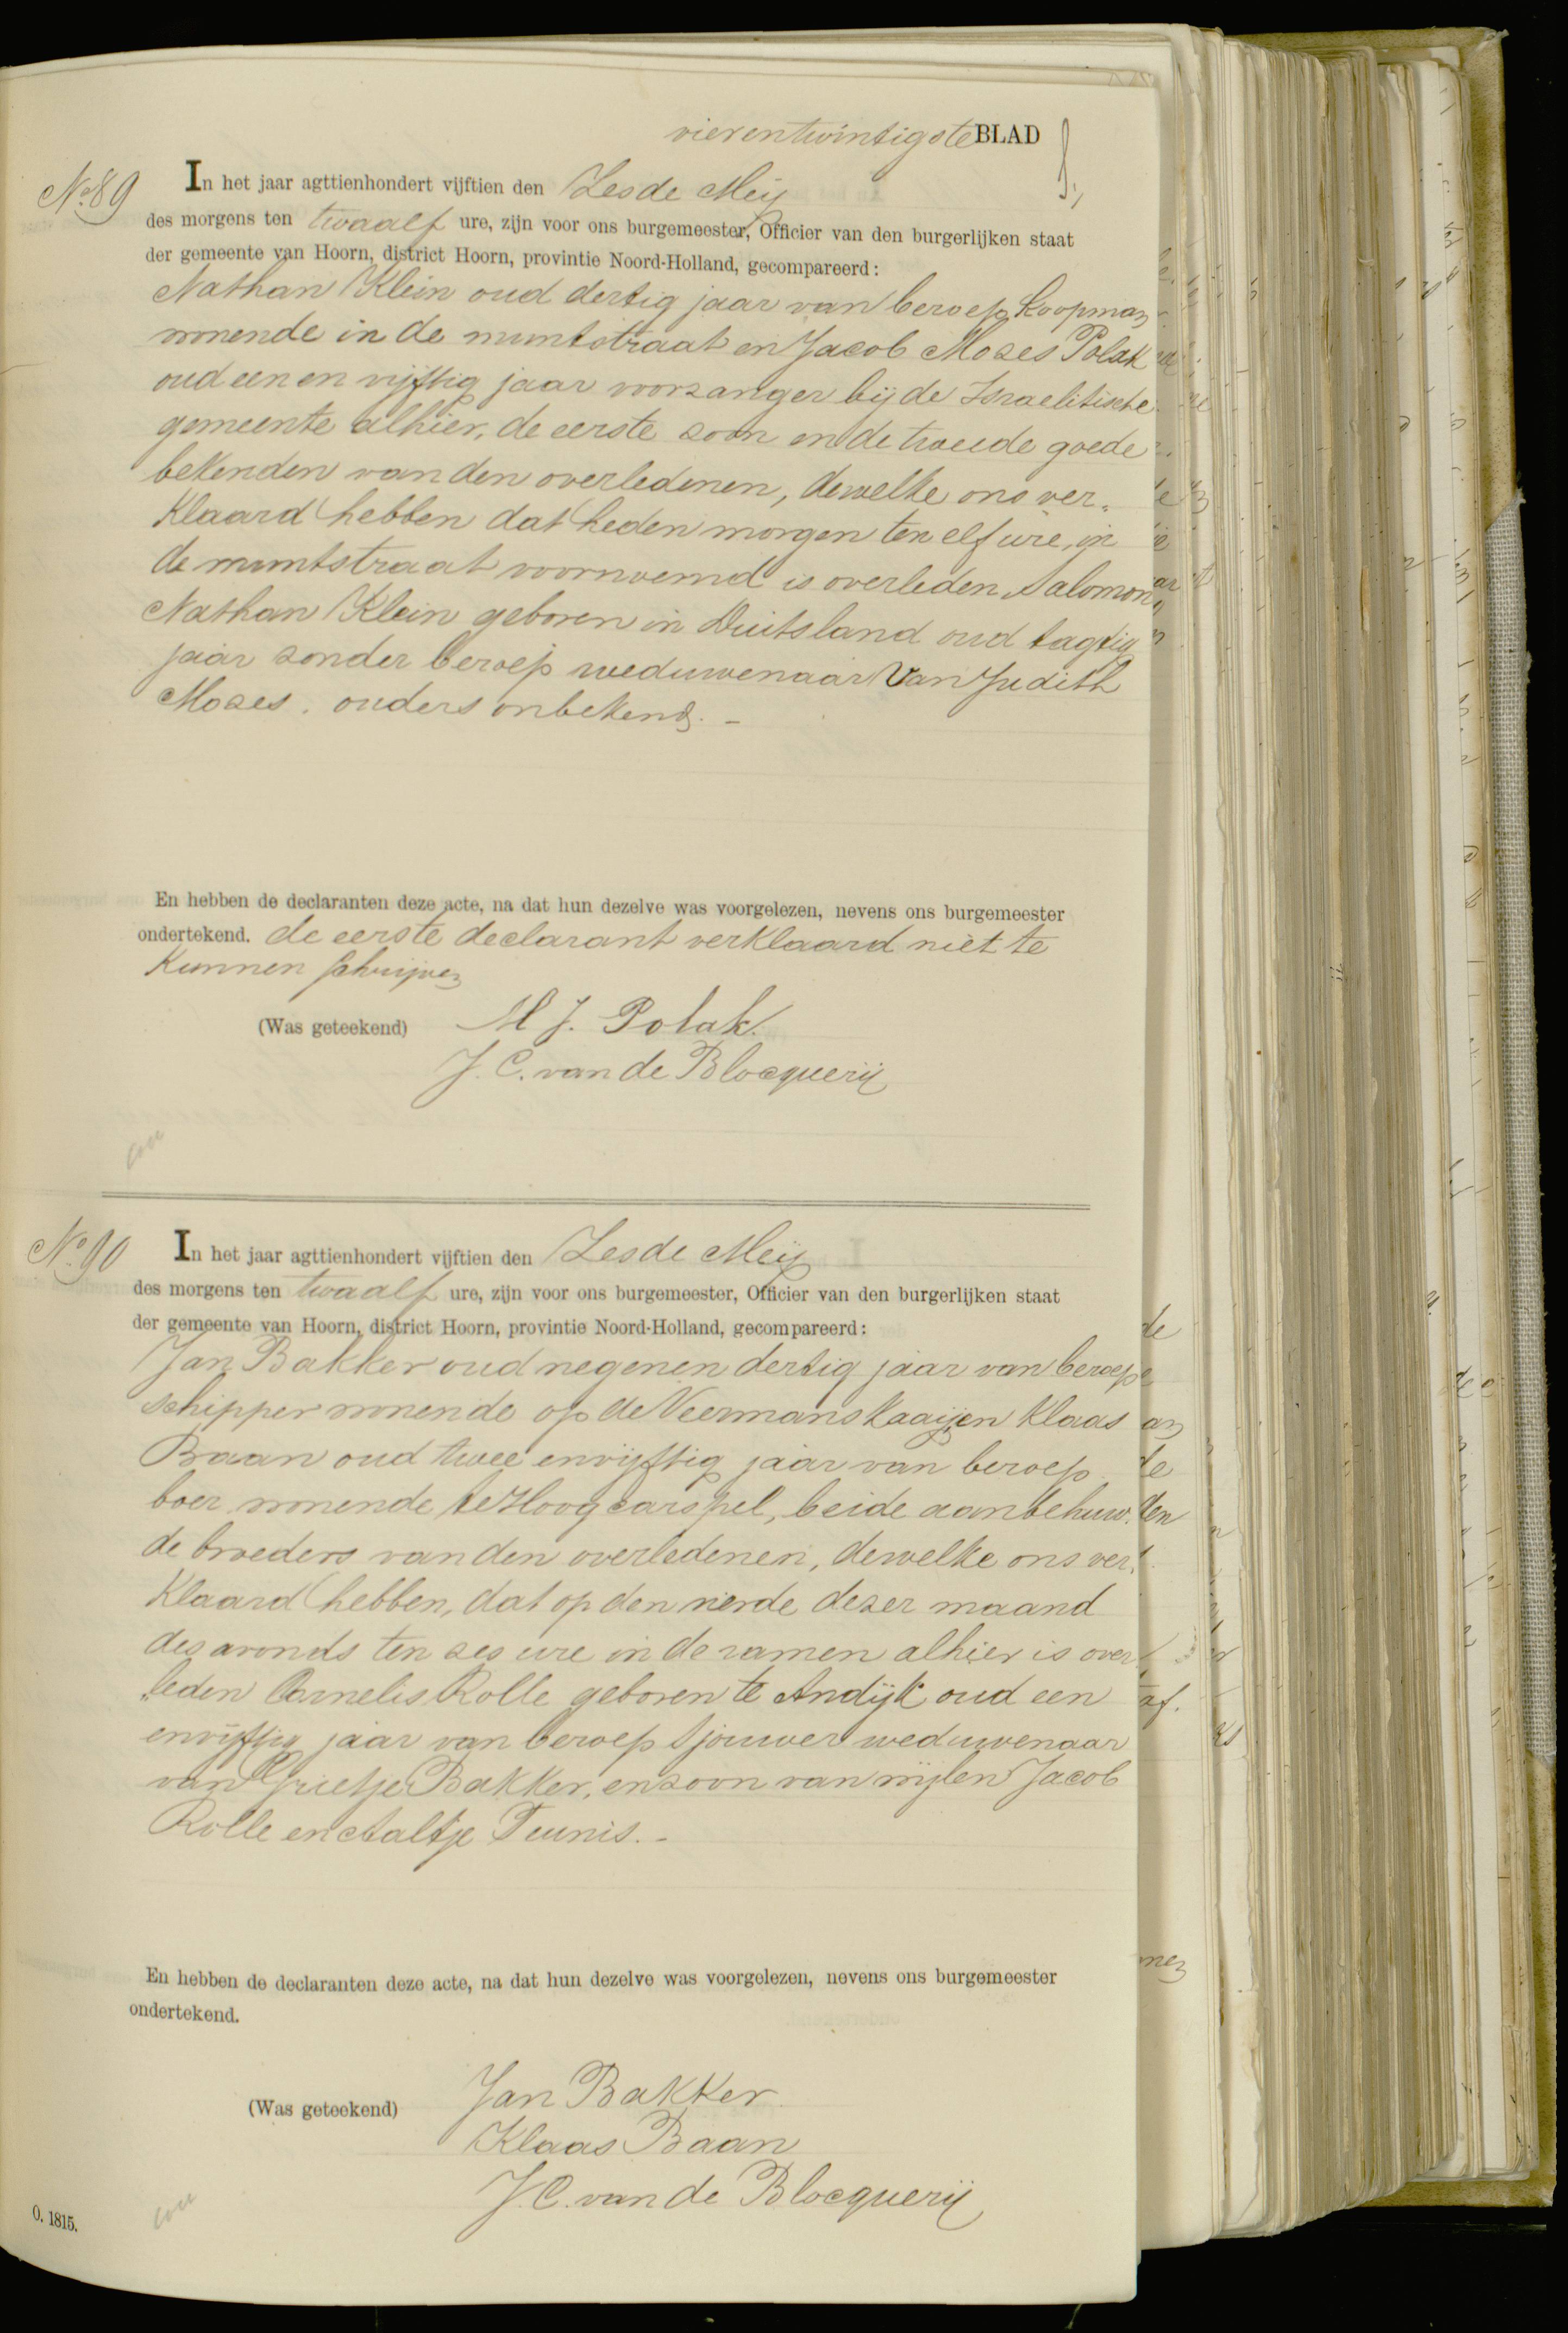 vierentwintigste BLAD
No. 89 In het jaar agttienhondert vijftien den Zesde Meij
des morgens ten twaalf ure, zijn voor ons burgemeester, Officier van den burgerlijken staat
der gemeente van Hoorn, district Hoorn, provintie Noord-Holland, gecompareerd:
Nathan Klein oud dertig jaar van beroep Koopman
wonende in de muntstraat en Jacob Mozes Polak
oud een en vijftig jaar voorzanger bij de Israelitische
gemeente alhier, de eerste zoon en de tweede goede
bekenden van den overledenen, dewelke ons ver„
klaard hebben dat heden morgen ten elf ure, in
de muntstraat voornoemd is overleden Salomon
Nathan Klein geboren in Duitsland oud tagtig
jaar zonder beroep weduwenaar van Judith
Mozes. ouders onbekend. –
En hebben de declaranten deze acte, na dat hun dezelve was voorgelezen, nevens ons burgemeester
ondertekend. de eerste declarant verklaard niet te
kunnen schrijven
(Was geteekend) M J. Polak.
J. C. van de Blocquerij
No. 90 In het jaar agttienhondert vijftien den Zesde Meij
des morgens ten twaalf ure, zijn voor ons burgemeester, Officier van den burgerlijken staat
der gemeente van Hoorn, district Hoorn, provintie Noord-Holland, gecompareerd:
Jan Bakker oud negenen dertig jaar van beroep
schipper wonende op de Veermanskaaij en Klaas
Baan oud twee en vijftig jaar van beroep
boer wonende te Hoogcarspel, beide aanbehuw„
de broeders van den overledenen, dewelke ons ver„
klaard hebben, dat op den vierde dezer maand
des avonds ten zes ure in de ramen alhier is over
„leden Cornelis Rolle geboren te Andijk oud een
en vijftig jaar van beroep sjouwer weduwenaar
van Grietje Bakker, en zoon van wijlen Jacob
Rolle en Aaltje Teunis. –
En hebben de declaranten deze acte, na dat hun dezelve was voorgelezen, nevens ons burgemeester
ondertekend.
(Was geteekend) Jan Bakker
Klaas Baan
J. C. van de Blocquerij
O. 1815.